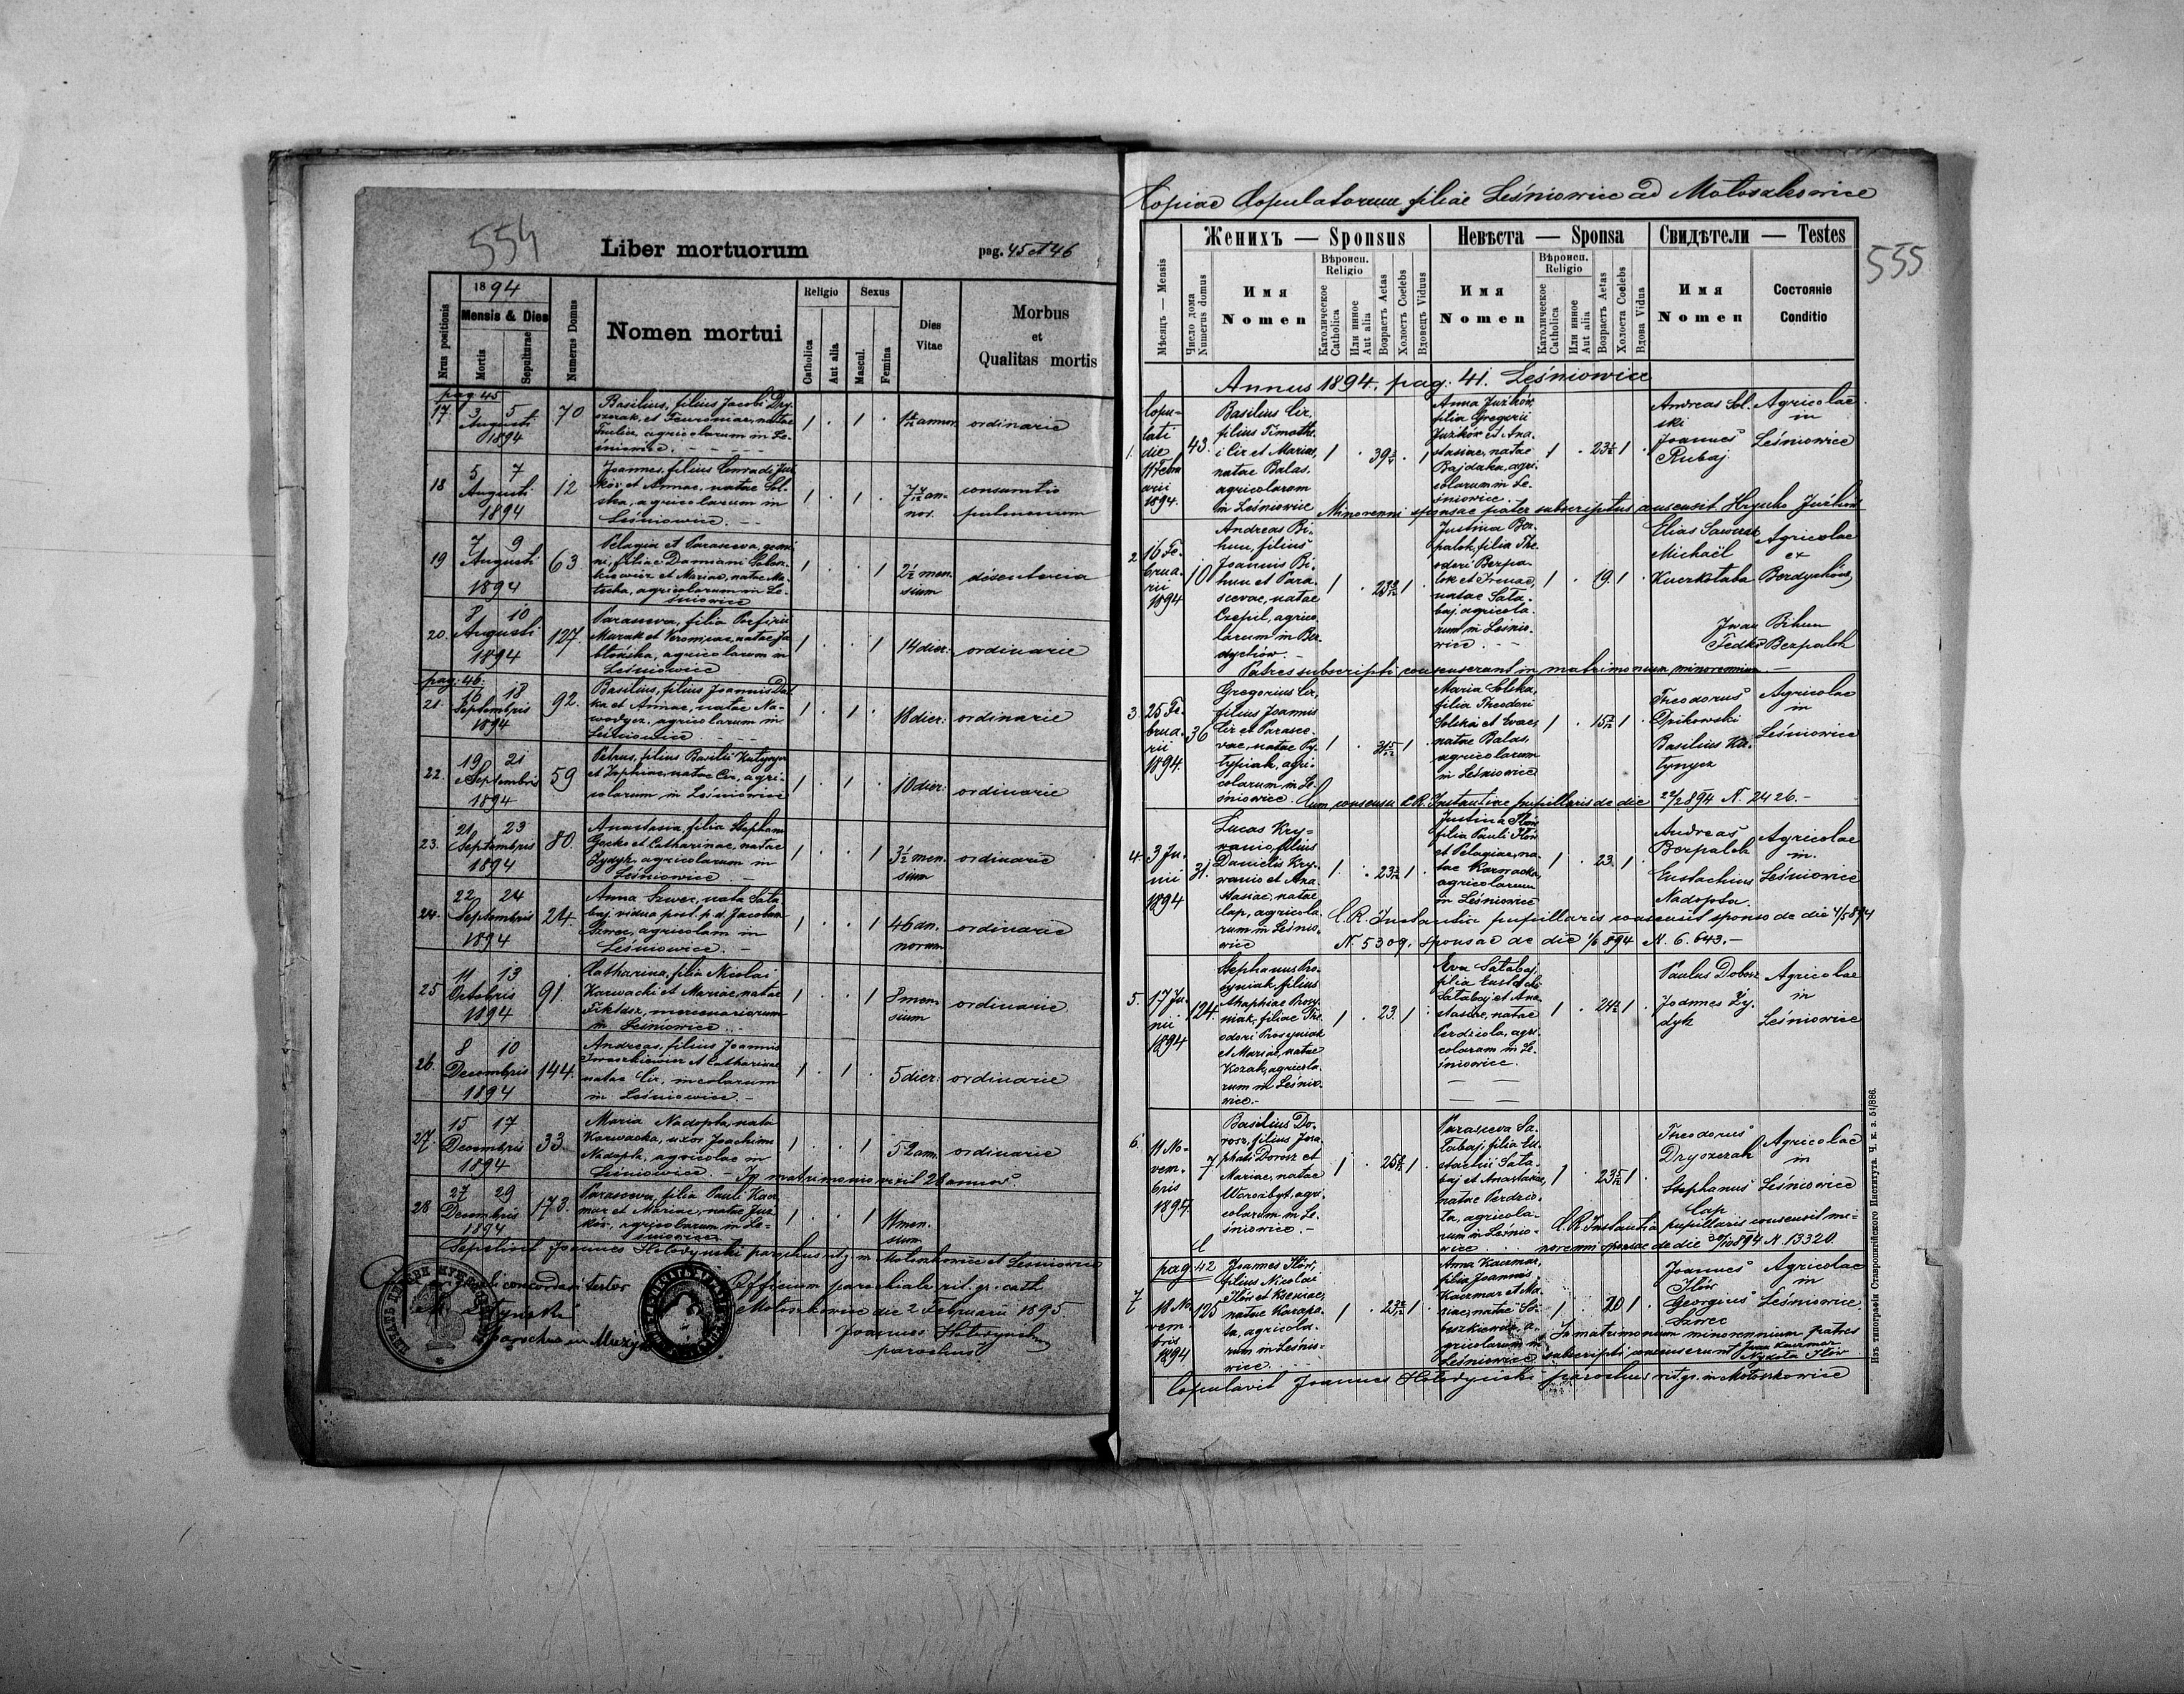 554
Liber mortuorum
pag. 45 et 46
Nrus positionis
1894
Mensis & Dies
Mortis
Sepulturae
Numerus Domus
Nomen mortui
Religio
Catholica
Aut alia
Sexus
Mascul.
Femina
Dies
Vitae
Morbus
et
Qualitas mortis
pag 45
17 3 5 Augusti 1894 70
Basilius, filius Jacobi
natae
agricolarum in Le-
śniowice.
ordinarie
18 5 7 Augusti 1894 12
Joannes, filius Conradi Juź
ków et Annae, natae Sol-
ska, agricolarum in
Leśniowice.
consumtio
pulmonum
19 7 9 Augusti 1894 63
Pelagia et Parasceva, gemi
ni, filiae Damiani
et Mariae, natae
agricolarum in Le-
śniowice
2½ men-
sium
20. 8 10 Augusti 1894 127.
Parasceva, filia Porfirii
Mazak et Veronicae, natae Ja
błońska, agricolarum in
Leśniowice
14 dier. ordinarie
pag: 46.
21. 16 18 Septembris 1894 92.
Basilius, filius Joannis
et Annae, natae Na-
agricolarum in
Leśniowice
18 dier. ordinarie
22. 19 21 Septembris 1894 59
Petrus, filius Basilii
et Sophiae, natae Cir, agri-
colarum in Leśniowice
10 dier: ordinarie
23. 21 23 Septembris 1894 80.
Anastasia, filia Stephani
et Catharinae, natae
Zydyk, agricolarum in
Leśniowice.
3½ men-
sium
ordinarie
24. 22 24 Septembris 1894 24.
Anna Szwec, nata Sata
baj, vidua post p. d. Jacobum
Szwec, agricolam in
Leśniowice. -
46 an-
norum
ordinarie
25 11 13 Octobris 1894 91.
Catharina, filia Nicolai
Karwacki et Mariae, natae
mercenariorum
in Leśniowice
8 men-
sium
ordinarie
26. 8 10 Decembris 1894 144.
Andreas, filius Joannis
Iwaszkiewicz et Catharinae
natae Cir, incolarum
in Leśniowice. -
5 dier: ordinarie
27. 15 17 Decembris 1894 33.
Maria Nadopta, nata
Karwacka, uxor Joachimi
Nadopta, agricolae in
Leśniowice. - In matrimonio vixit 28 annos.
52 ann. ordinarie
28 27 29 Decembris 1894 173.
Parasceva, filia Pauli Kacz
mar et Mariae, natae Juź
ków, agricolarum in Le-
śniowice
men-
sium
Sepelivit Joannes Hołodyński parochus rit. gr. in Mołoszkowice et Leśniowice
Officium parochiale rit. gr. cath.
Mołoszkowice die 2 Februarii 1895
Joannes Hołodyński
parochus
parochus in
Copiae Copulatorum filiae Leśniowice ad Mołoszkowice
555
Женихъ — Sponsus
Невѣста — Sponsa
Свидѣтели — Testes
Мѣсяцъ — Mensis
Число дома
Numerus domus
Имя
Nomen
Вѣроисп.
Religio
Католическое
Catholica
Или иное
Aut alia
Возрастъ Aetas
Холостъ Coelebs
Вдовецъ Viduus
Имя
Nomen
Вѣроисп.
Religio
Католическое
Catholica
Или иное
Aut alia
Возрастъ Aetas
Холоста Coelebs
Вдова Vidua
Имя
Nomen
Состояніе
Conditio
Annus 1894. pag: 41. Leśniowice
1. Copu-
lati
die
11 Febru
arii
1894.
43.
Basilius Cir,
filius Timothe-
i Cir et Mariae,
natae Balas,
agricolarum
in Leśniowice
Anna Juźków,
filia Gregorii
Juźków et Ana-
stasiae, natae
Bajdaka, agri-
colarum in Le-
śniowice. -
Andreas Sol-
ski
Joannes
Rubaj
Agricolae
in
Leśniowice
Minorenni sponsae pater subscriptus consensit Hryńko Juźków
2. 16 Fe-
brua-
rii
1894
10
Andreas Bi-
hun, filius
Joannis Bi-
hun et Para-
scevae, natae
Czepil, agrico-
larum in Ber-
dychów. -
Justina Bez-
palok, filia The-
odori Bezpa-
lok et Irenae,
natae Sata-
baj, agricola-
rum in Leśnio-
wice.
19. 1
Elias
Michaël
Agricolae
ex
Berdychów
Iwan Bihun
Fedko Bezpalok
Patres subscripti consenserunt in matrimonium minorennium. -
3. 25 Fe-
brua-
rii
1894.
36
Gregorius Cir,
filius Joannis
Cir et Parasce-
vae, natae Py-
typiak, agri-
colarum in Le-
śniowice.
Maria Solska,
filia Theodori
Solski et Evae,
natae Balas,
agricolarum
in Leśniowice
Theodorus
Dzikowski
Basilius Ka-
tynycz
Agricolae
in
Leśniowice
Cum consensu C.R. Instantiae pupillaris de die 22/2 894 N. 2426. -
4. 3 Ju-
nii
1894
31.
Lucas Kry-
wanio, filius
Danielis Kry-
wanio et Ana-
stasiae, natae
Cap, agricola-
rum in Leśnio-
wice
Justina Iłów
filia Pauli Iłów
et Pelagiae, na-
tae Karwacka,
agricolarum
in Leśniowice
23. 1
Andreas
Bezpalok
Eustachius
Nadopta.
Agricolae
in
Leśniowice
C.R. Instantia pupillaris consensit sponso de die 4/5 894
N. 5309. sponsae de die 1/6 894 N. 6.643. -
5. 17 Ju-
nii
1894
124.
Stephanus Pro-
syniak, filius
Agaphiae Prosy-
niak, filiae The-
odori Prosyniak
et Mariae, natae
Kozak, agricola-
rum in Leśnio-
wice. -
23. 1
Eva Satabaj,
filia Eustachii
Satabaj et Ana-
stasiae, natae
Perdziola, agri-
colarum in Le-
śniowice.
Paulus Dobosz
Joannes Zy-
dyk
Agricolae
in
Leśniowice
6. 11 No-
vem-
bris
1894.
7
Basilius Do-
rosz, filius Josa-
phati Dorosz et
Mariae, natae
agri-
colarum in Le-
śniowice. -
Parasceva Sa-
tabaj, filia Eu-
stachii Sata-
baj et Anastasiae,
natae Perdzio-
ła, agricola-
rum in Leśnio-
wice
Theodorus
Stephanus
Cap
Agricolae
in
Leśniowice
C.R. Instantia pupillaris consensit mi-
norenni sponsae de die 30/10 894 N. 13320.
pag 42
7 18 No-
vem-
bris
1894
125
Joannes Iłów,
filius Nicolai
Iłów et Xeniae,
natae Karapa-
ta, agricola-
rum in Leśnio-
wice.
Anna Kaczmar,
filia Joannis
Kaczmar et Ma-
riae, natae So-
a-
gricolarum in
Leśniowice
20 1
Joannes
Iłów
Georgius
Szwec
Agricolae
in
Leśniowice.
In matrimonium minorennium patres
subscripti consenserunt Iwan Kaczmar
Nykoła Iłów
Copulavit Joannes Hołodyński parochus rit. gr. in Mołoszkowice
Изъ типографіи Ставропигійского Института. Ч. к. з. 51/886.